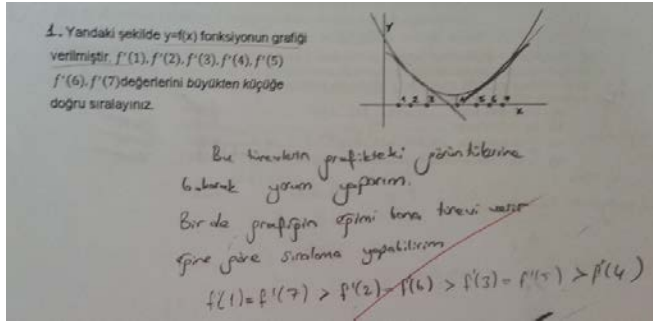 1. Yandaki şekilde y=f(x) fonksiyonun grafiği
verilmiştir. f'(1), f'(2), f'(3), f'(4), f'(5)
f'(6), f'(7) değerlerini büyükten küçüğe
doğru sıralayınız.
Y
1 2 3 4 5 6 7
x
Bu türevlerin grafikteki görüntülerine
bakarak yorum yaparım.
Bir de grafiğin eğimi bana türevi verir
göre sıralama yapabilirim
f'(1) = f'(7) > f'(2) = f'(6) > f'(3) = f'(5) > f'(4)